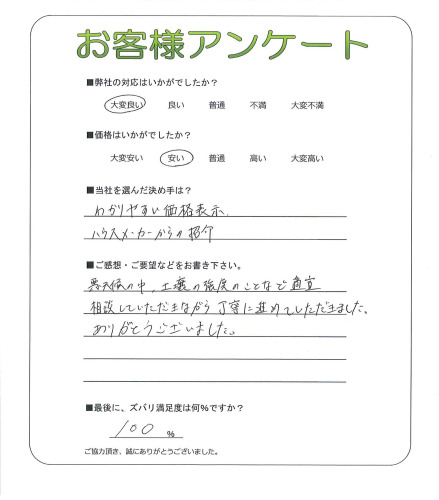 お客様アンケート
■弊社の対応はいかがでしたか？
大変良い　良い　普通　不満　大変不満
■価格はいかがでしたか？
大変安い　安い　普通　高い　大変高い
■当社を選んだ決め手は？
わかりやすい価格表示、
ハウスメーカーからの紹介
■ご感想・ご要望などをお書き下さい。
悪天候の中、土壌の強度のことなど適宜
相談していただきながら丁寧に進めていただきました。
ありがとうございました。
■最後に、ズバリ満足度は何%ですか？
100 %
ご協力頂き、誠にありがとうございました。